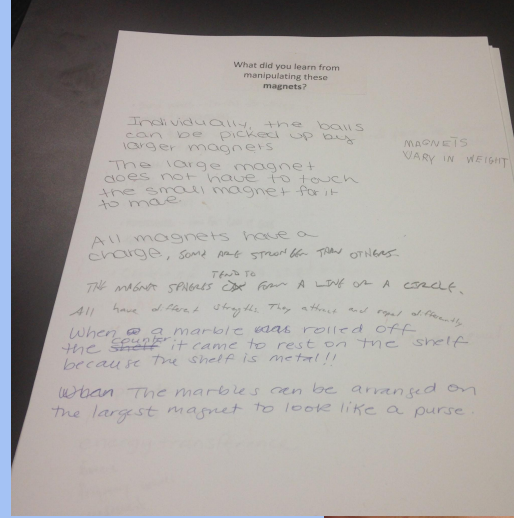 What did you learn from
manipulating these
magnets?
Individually, the balls
can be picked up by
larger magnets
MAGNETS
VARY IN WEIGHT
The large magnet
does not have to touch
the small magnet for it
to move.
All magnets have a
charge, SOME ARE STRONGER THAN OTHERS.
TEND TO
THE MAGNET SPHERES FORM A LINE OR A CIRCLE.
All have different strengths They attract and repel differently
When a marble was rolled off
counter
the shelf it came to rest on the shelf
because the shelf is metal!!
The marbles can be arranged on
the largest magnet to look like a purse.